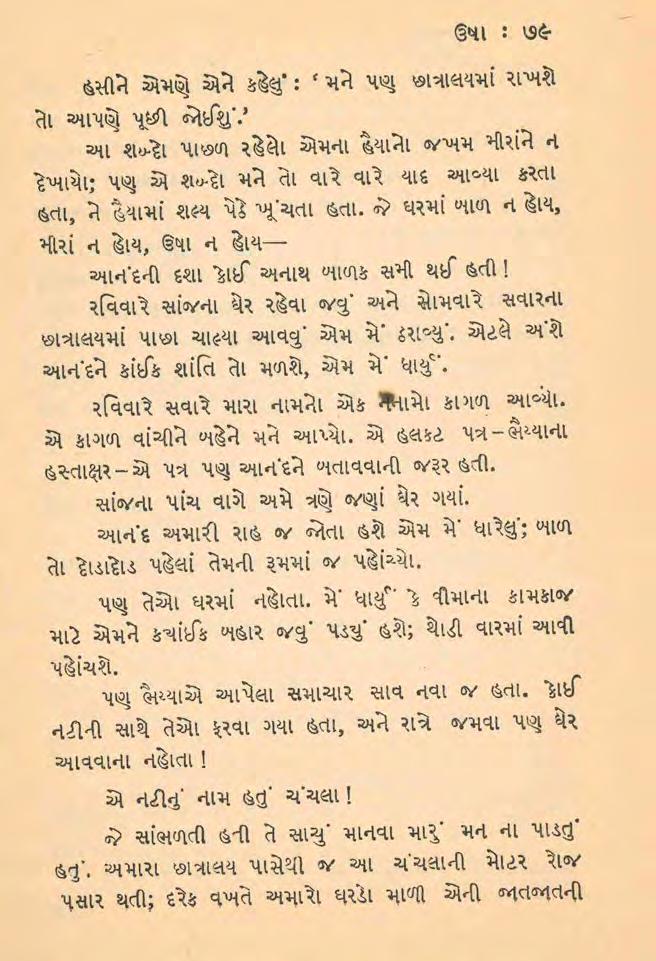 ઉષા : ૭૯
હસીને એમણે એને કહેલું : ‘ મને પણ છાત્રાલયમાં રાખશે
તો આપણે પૂછી જોઈશું.’
આ શબ્દો પાછળ રહેલો એમના હૈયાનો જખમ મીરાંને ન
દેખાયો; પણ એ શબ્દો મને તો વારે વારે યાદ આવ્યા કરતા
હતા, ને હૈયામાં શલ્ય પેઠે ખૂંચતા હતા. જે ઘરમાં બાળ ન હોય,
મીરાં ન હોય, ઉષા ન હોય—
આનંદની દશા કોઈ અનાથ બાળક સમી થઈ હતી !
રવિવારે સાંજના ઘેર રહેવા જવું અને સોમવારે સવારના
છાત્રાલયમાં પાછા ચાલ્યા આવવું એમ મેં ઠરાવ્યું. એટલે અંશે
આનંદને કાંઈક શાંતિ તો મળશે, એમ મેં ધાર્યું.
રવિવારે સવારે મારા નામનો એક નનામો કાગળ આવ્યો.
એ કાગળ વાંચીને બહેને મને આપ્યો. એ હલકટ પત્ર – ભૈય્યાના
હસ્તાક્ષર – એ પત્ર પણ આનંદને બતાવવાની જરૂર હતી.
સાંજના પાંચ વાગે અમે ત્રણે જણાં ઘેર ગયાં.
આનંદ અમારી રાહ જ જોતા હશે એમ મેં ધારેલું; બાળ
તો દોડાદોડ પહેલાં તેમની રૂમમાં જ પહોંચ્યો.
પણ તેઓ ઘરમાં નહોતા. મેં ધાર્યું કે વીમાના કામકાજ
માટે એમને કયાંઈક બહાર જવું પડ્યું હશે; થોડી વારમાં આવી
પહોંચશે.
પણ ભૈય્યાએ આપેલા સમાચાર સાવ નવા જ હતા. કોઈ
નટીની સાથે તેઓ ફરવા ગયા હતા, અને રાત્રે જમવા પણ ઘેર
આવવાના નહોતા !
એ નટીનું નામ હતું ચંચલા !
જે સાંભળતી હતી તે સાચું માનવા મારું મન ના પાડતું
હતું. અમારા છાત્રાલય પાસેથી જ આ ચંચલાની મોટર રોજ
પસાર થતી; દરેક વખતે અમારો ઘરડો માળી એની જાતજાતની